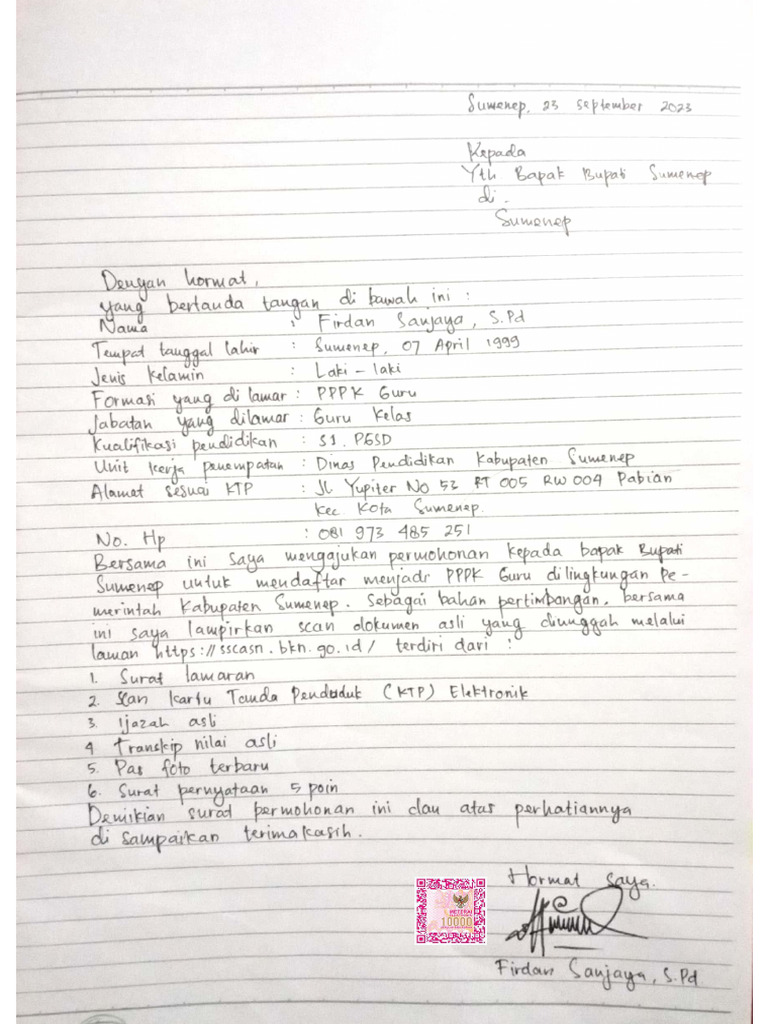 Sumenep, 23 September 2023
Kepada
Yth Bapak Bupati Sumenep
di.
Sumenep
Dengan hormat,
yang bertanda tangan di bawah ini :
Nama : Firdan Sanjaya, S.Pd
Tempat tanggal lahir : Sumenep, 07 April 1999
Jenis Kelamin : Laki - laki
Formasi yang di lamar : PPPK Guru
Jabatan yang dilamar : Guru Kelas
Kualifikasi pendidikan : S1. PGSD
Unit kerja penempatan : Dinas Pendidikan Kabupaten Sumenep
Alamat sesuai KTP : Jl Yupiter No 53 RT 005 RW 004 Pabian
Kec Kota Sumenep.
No. Hp : 081 973 485 251
Bersama ini saya mengajukan permohonan kepada bapak Bupati
Sumenep untuk mendaftar menjadi PPPK Guru dilingkungan Pe-
merintah Kabupaten Sumenep. Sebagai bahan pertimbangan, bersama
ini saya lampirkan scan dokumen asli yang diunggah melalui
laman https://sscasn.bkn.go.id/ terdiri dari :
1. Surat lamaran
2. Scan Kartu Tanda Penduduk (KTP) Elektronik
3. Ijazah asli
4 Transkip nilai asli
5. Pas foto terbaru
6. Surat pernyataan 5 poin
Demikian surat permohonan ini dan atas perhatiannya
di sampaikan terimakasih.
Hormat saya.
METERAI
10000
Firdan Sanjaya, S.Pd